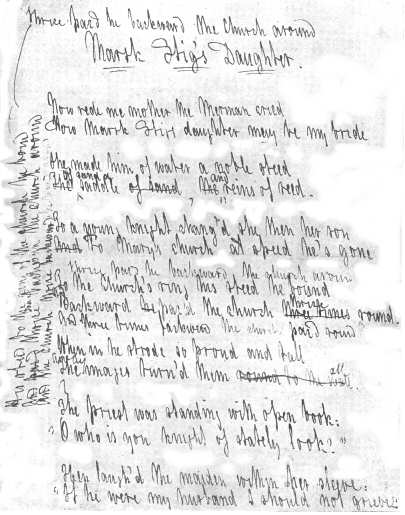 Thrice pac'd he backward the church around
Marsk Stig's Daughter.
Now rede me mother the Merman cried
How Marsk Stig's daughter may be my bride
She made him of water a noble steed
of sand a saddle of sand, and the reins of reed.
To a young knight chang'd she then her son
And To Mary's church at speed he's gone
Thrice pac'd he backward the church around
To the Church's ring his steed he bound
Backward he pac'd the church thrice three times round.
And three times backward the church pac'd round
When in he strode so proud and tall
The images turn'd them round to the wall.
The priest was standing with open book:
"O who is yon knight of stately look?"
Then laugh'd the maiden within her sleeve:
"If he were my husband I should not grieve."
His steed to the ring of the church he bound
And thrice backward the church around